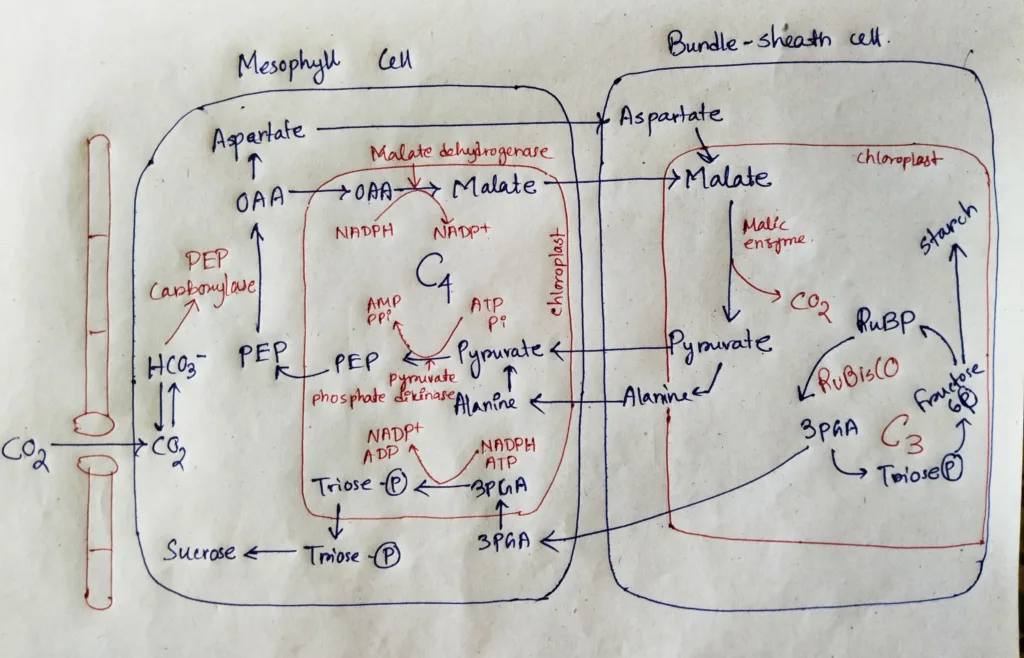 Mesophyll Cell
Bundle-sheath cell.
Aspartate
Aspartate
Malate dehydrogenase
chloroplast
OAA
OAA
Malate
Malate
NADPH
NADP+
Malic
enzyme.
starch
PEP
Carboxylase
C4
chloroplast
CO2
AMP
PPi
ATP
Pi
RuBP
HCO3-
PEP
PEP
Pyruvate
Pyruvate
RuBisCO
pyruvate
phosphate dikinase
Alanine
Alanine
Fructose
6P
3PGA
C3
CO2
CO2
NADP+
ADP
NADPH
ATP
Triose P
Triose-P
3PGA
Sucrose
Triose-P
3PGA